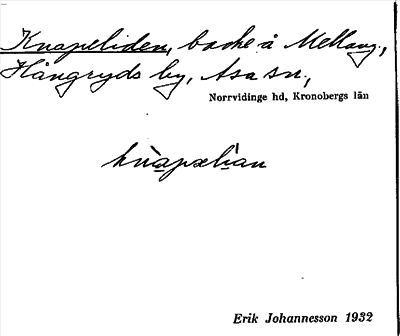 Knapeliden, backe å Mellang.,
Hångryds by, Asa sn.,
Norrvidinge hd, Kronobergs län
knapælian
Erik Johannesson 1932